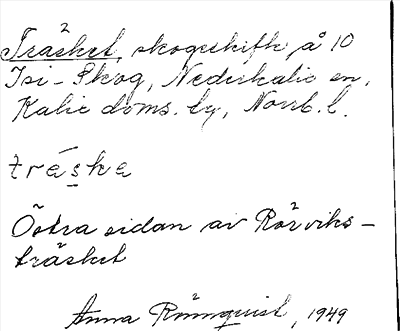 Träsket, skogsskifte å 10
Isi-Skog, Nederkalix sn,
Kalix doms. by, Norrb. l.
träske
Östra sidan av Rörviks-
träsket
Anna Rönnquist, 1949